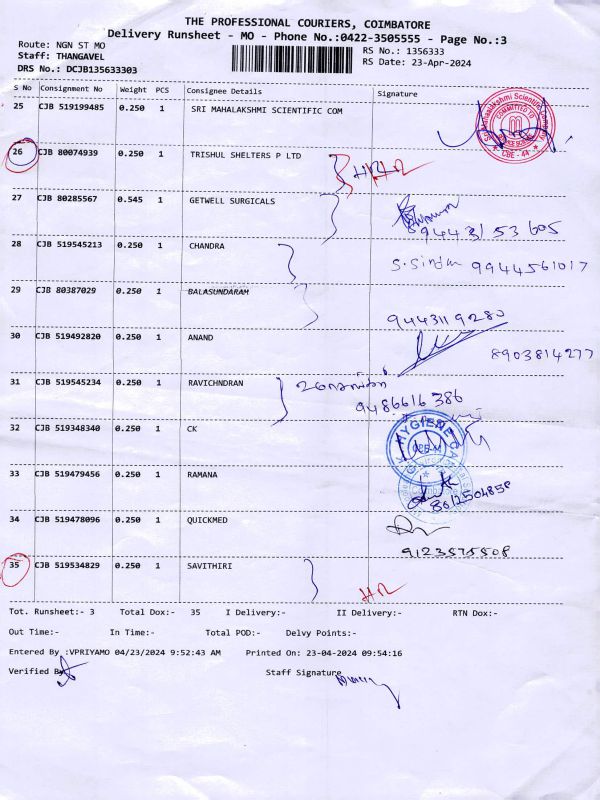 THE PROFESSIONAL COURIERS, COIMBATORE
Delivery Runsheet - MO - Phone No.:0422-3505555 - Page No.:3
Route: NGN ST MO
RS No.: 1356333
Staff: THANGAVEL
RS Date: 23-Apr-2024
DRS No.: DCJB135633303
S No Consignment No Weight PCS Consignee Details Signature
25 CJB 519199485 0.250 1 SRI MAHALAKSHMI SCIENTIFIC COM
26 CJB 80074939 0.250 1 TRISHUL SHELTERS P LTD
27 CJB 80285567 0.545 1 GETWELL SURGICALS
9443153605
28 CJB 519545213 0.250 1 CHANDRA
9944561017
29 CJB 80387029 0.250 1 BALASUNDARAM
9443119280
30 CJB 519492820 0.250 1 ANAND
8903814277
31 CJB 519545234 0.250 1 RAVICHNDRAN
9486616386
32 CJB 519348340 0.250 1 CK
33 CJB 519479456 0.250 1 RAMANA
8012504858
34 CJB 519478096 0.250 1 QUICKMED
9123575508
35 CJB 519534829 0.250 1 SAVITHIRI
Tot. Runsheet:- 3 Total Dox:- 35 I Delivery:- II Delivery:- RTN Dox:-
Out Time:- In Time:- Total POD:- Delvy Points:-
Entered By :VPRIYAMO 04/23/2024 9:52:43 AM Printed On: 23-04-2024 09:54:16
Verified By
Staff Signature